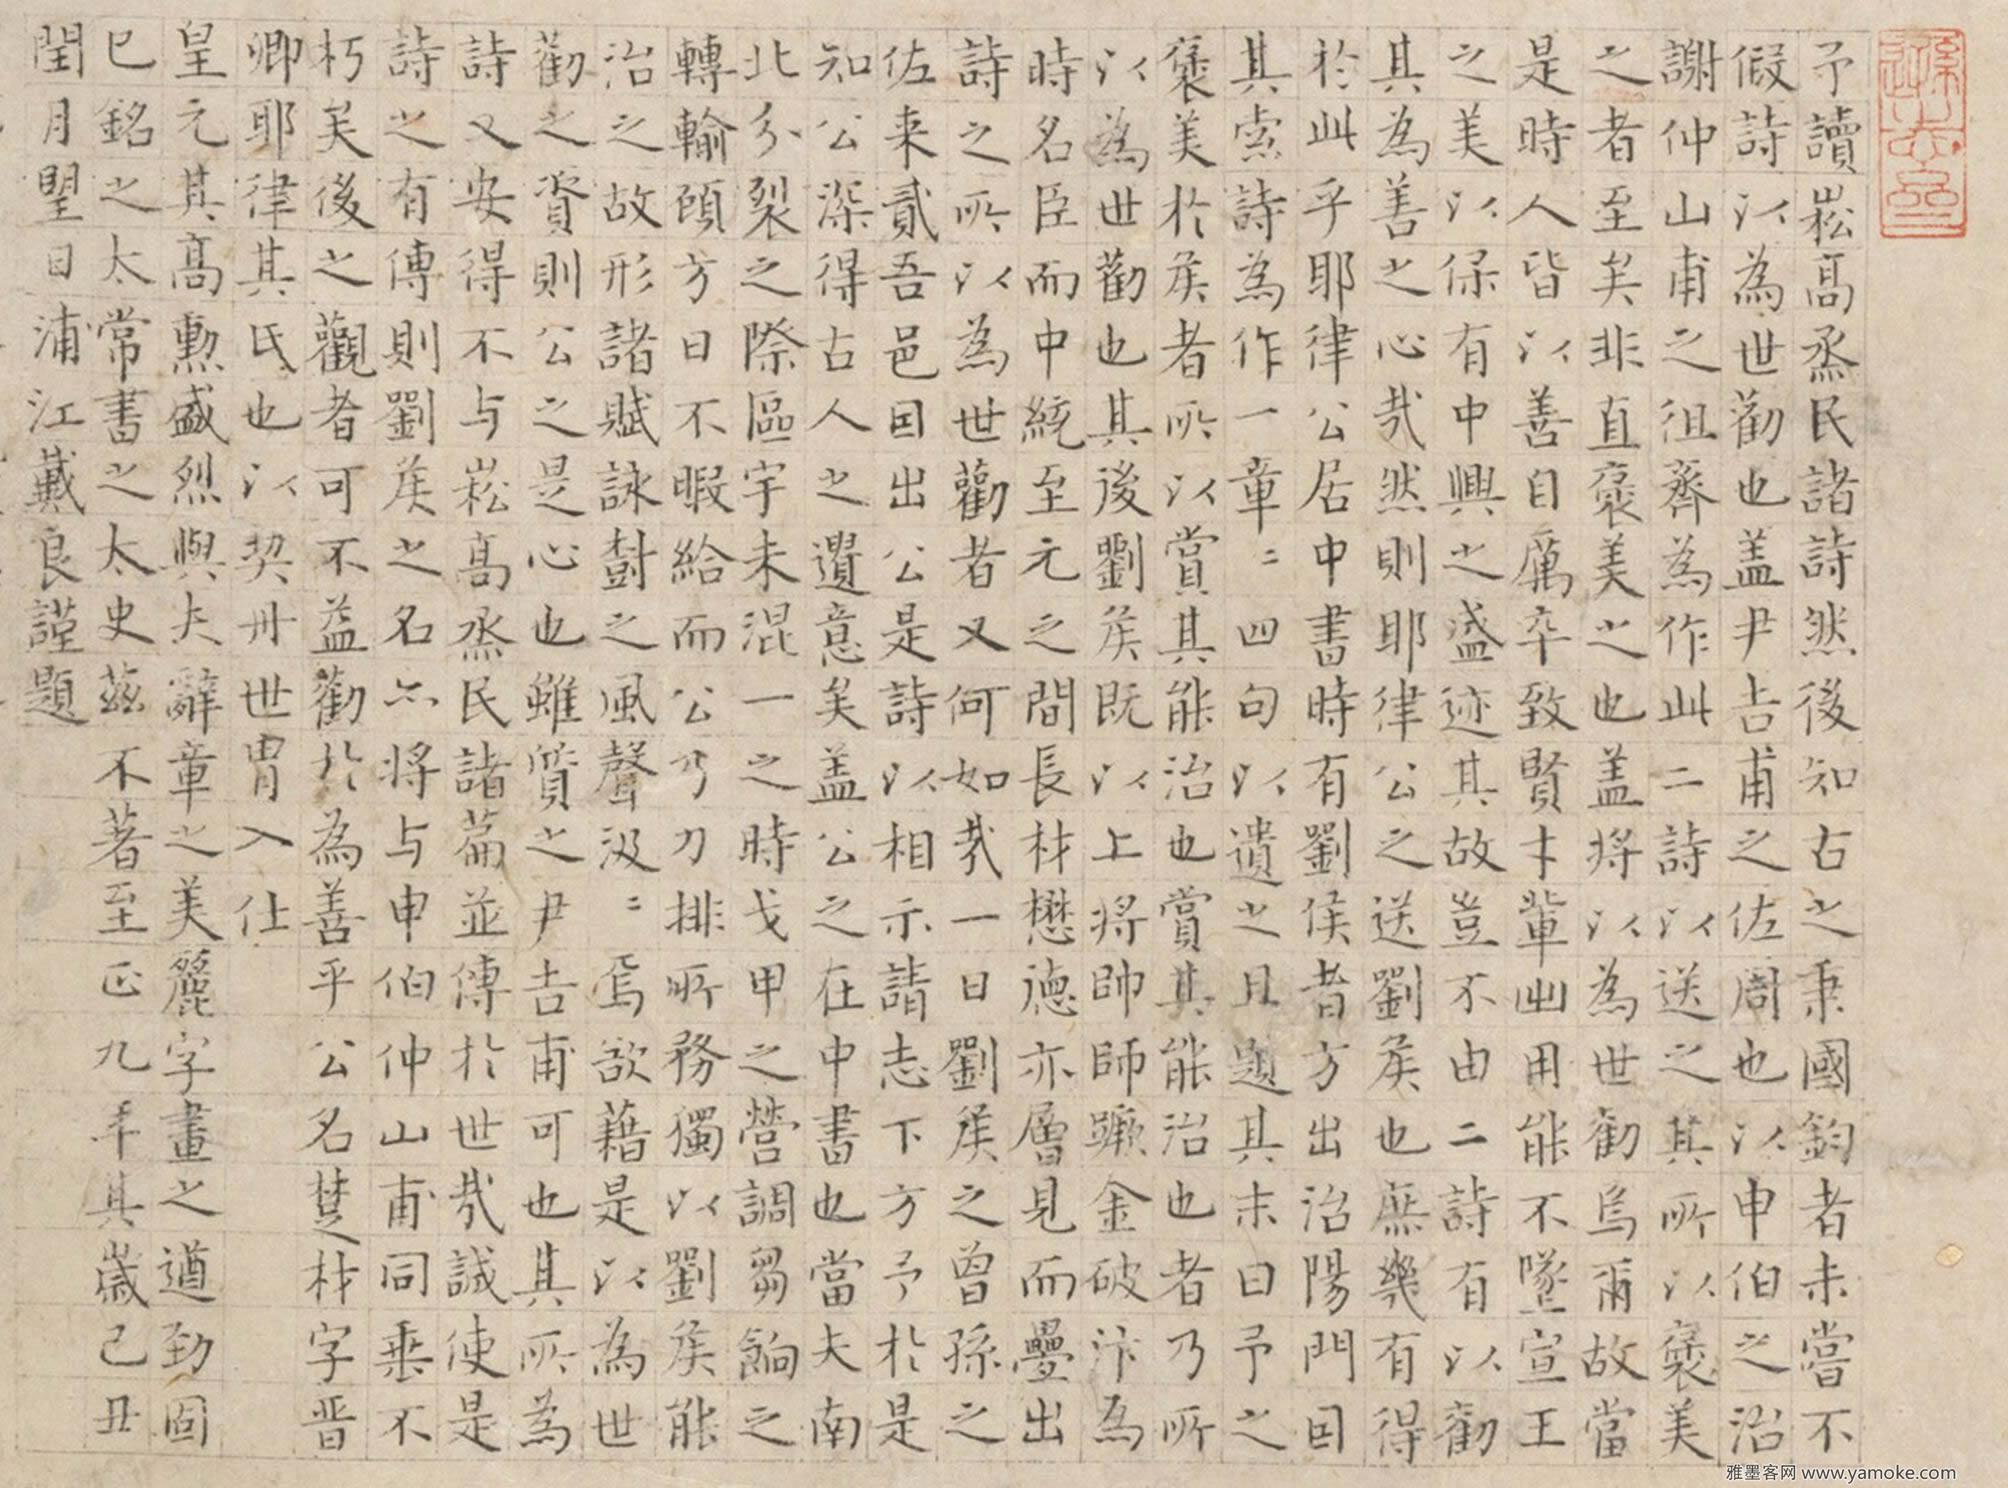 予讀崧高烝民諸詩然後知古之秉國鈞者未嘗不
假詩以為世勸也盖尹吉甫之佐周也以申伯之治
謝仲山甫之徂齊為作此二詩以送之其所以褒美
之者至矣非直褒美之也盖將以為世勸烏爾故當
是時人皆以善自厲卒致賢才輩出用能不墜宣王
之美以保有中興之盛迹其故豈不由二詩有以勸
其為善之心㢤然則耶律公之送劉矦也庶幾有得
於此乎耶律公居中書時有劉侯者方出治陽門因
其索詩為作一章二四句以遺之且題其末曰予之
褒美於矦者所以賞其能治也賞其能治也者乃所
以為世勸也其後劉矦既以上將帥師蹶金破汴為
時名臣而中統至元之間長材懋德亦層見而疊出
詩之所以為世勸者又何如㢤一日劉矦之曾孫之
佐来貳吾邑因出公是詩以相示請志下方予於是
知公深得古人之遺意矣盖公之在中書也當夫南
北分裂之際區宇未混一之時戈甲之營調芻餉之
轉輸頋方日不暇給而公乃力排所務獨以劉矦能
治之故形諸賦詠樹之風聲汲二焉欲藉是以為世
勸之資則公之是心也雖質之尹吉甫可也其所為
詩又安得不与崧高烝民諸萹並傳於世㢤誠使是
詩之有傳則劉矦之名亦將与申伯仲山甫同垂不
朽矣後之觀者可不益勸於為善乎公名楚材字晋
卿耶律其氏也以契丹世胄入仕
皇元其高勲盛烈與夫辭章之美麗字畫之遒勁固
已銘之太常書之太史茲不著至正九年其歲己丑
閏月朢日浦江戴良謹題
雅墨客网 www.yamoke.com